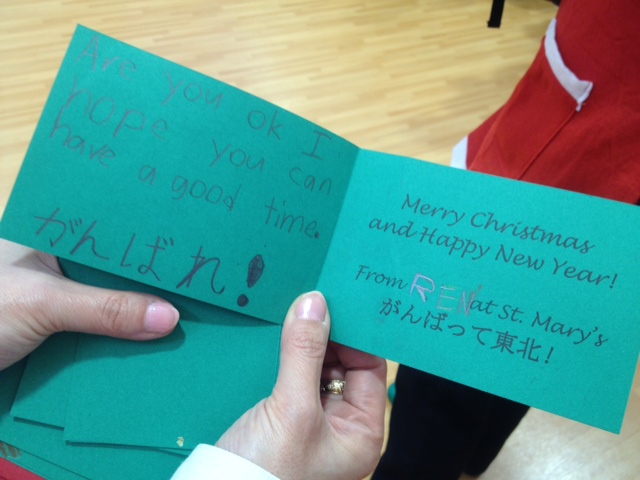 Are you ok I
hope you can
have a good time.
がんばれ!
Merry Christmas
and Happy New Year!
From REN at St. Mary's
がんばって東北!